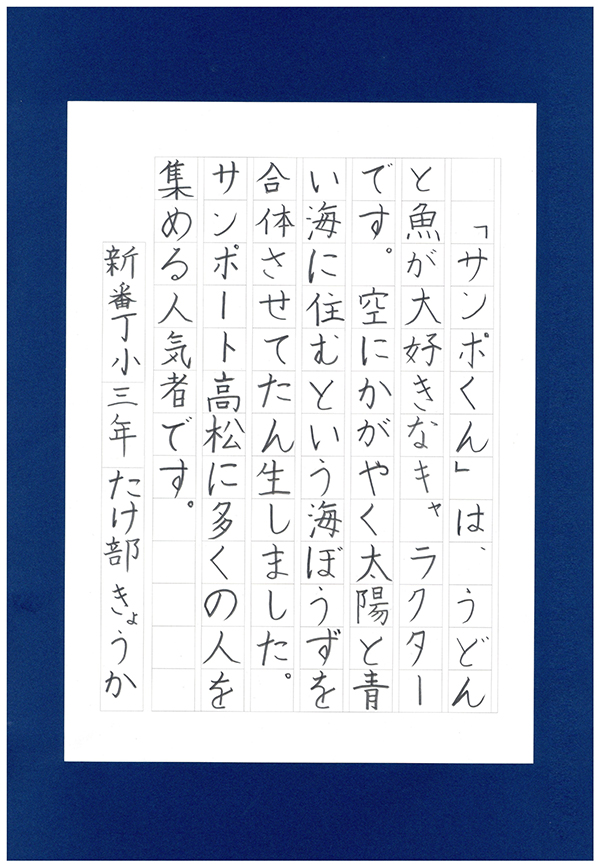 「サンポくん」は、うどん
と魚が大好きなキャラクター
です。空にかがやく太陽と青
い海に住むという海ぼうずを
合体させてたん生しました。
サンポート高松に多くの人を
集める人気者です。
新番丁小三年 たけ部きょうか